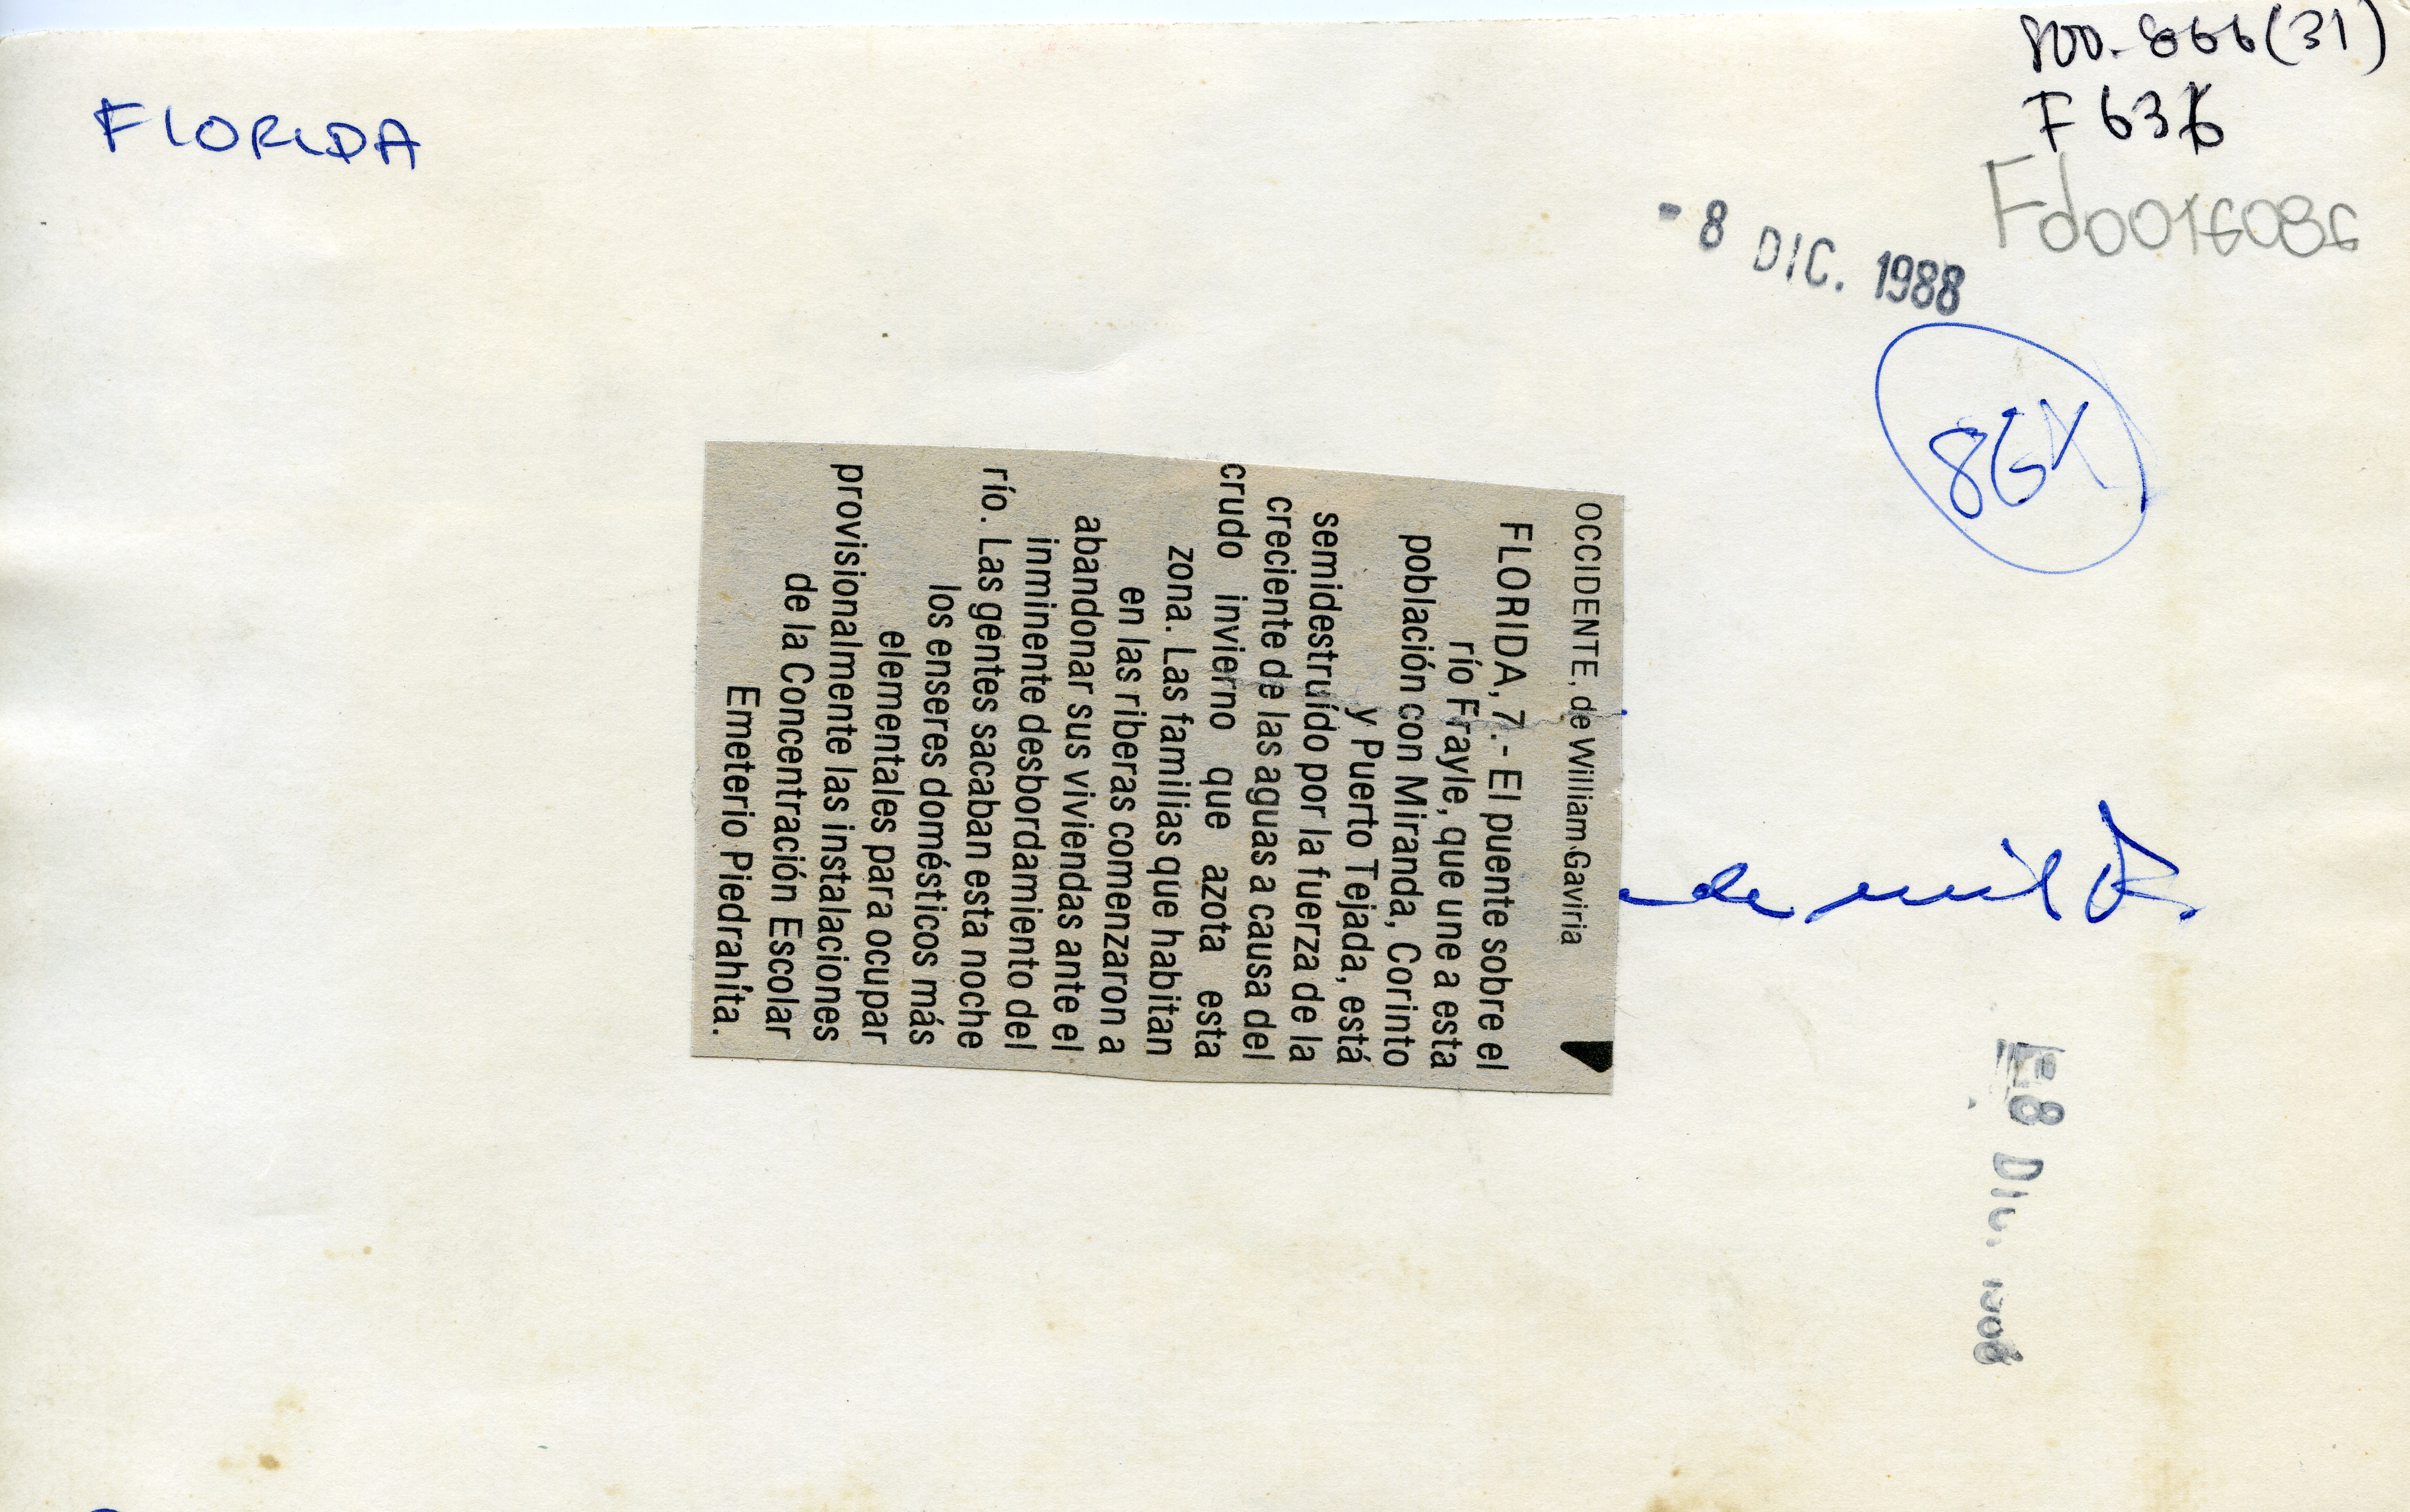 FLORIDA
F636
Fd0016086
- 8 DIC. 1988
86X
OCCIDENTE, de William Gaviria
FLORIDA, 7.- El puente sobre el
río Frayle, que une a esta
población con Miranda, Corinto
y Puerto Tejada, está
semidestruído por la fuerza de la
creciente de las aguas a causa del
crudo invierno que azota esta
zona. Las familias que habitan
en las riberas comenzaron a
abandonar sus viviendas ante el
inminente desbordamiento del
río. Las gentes sacaban esta noche
los enseres domésticos más
elementales para ocupar
provisionalmente las instalaciones
de la Concentración Escolar
Emeterio Piedrahíta.
de
8